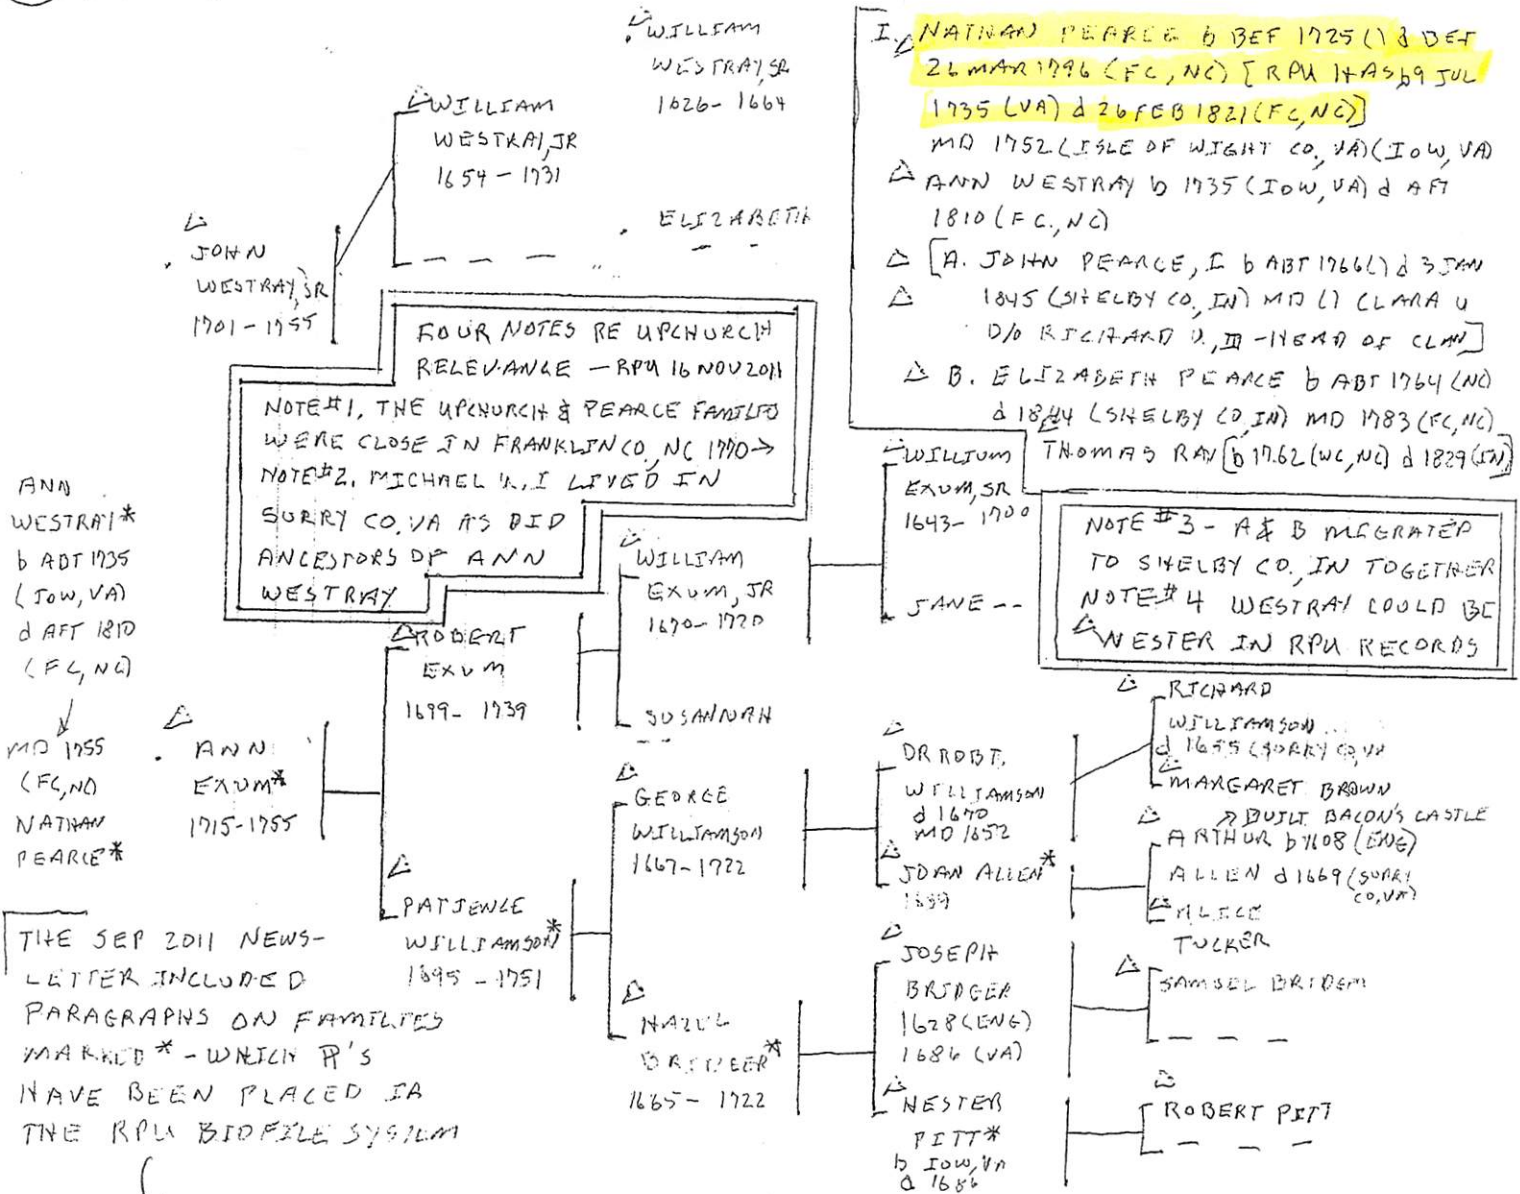 WILLIAM
WESTRAY, SR
1626-1664
WILLIAM
WESTRAY, JR
1654-1731
ELIZABETH
JOHN
WESTRAY, SR
1701-1755
I. NATHAN PEARCE b BEF 1725 () d BEF
26 MAR 1796 (FC, NC) [RPU HAS b 9 JUL
1735 (VA) d 26 FEB 1821 (FC, NC)]
MD 1752 (ISLE OF WIGHT CO., VA) (IOW, VA)
ANN WESTRAY b 1735 (IOW, VA) d AFT
1810 (FC., NC)
[A. JOHN PEARCE, I b ABT 1766 () d 3 JAN
1845 (SHELBY CO, IN) MD () CLARA U
D/O RICHARD U., III - HEAD OF CLAN]
B. ELIZABETH PEARCE b ABT 1764 (NC)
d 1844 (SHELBY CO, IN) MD 1783 (FC, NC)
THOMAS RAY [b 1762 (WC, NC) d 1829 (IN)]
FOUR NOTES RE UPCHURCH
RELEVANCE - RPU 16 NOV 2011
NOTE #1. THE UPCHURCH & PEARCE FAMILIES
WERE CLOSE IN FRANKLIN CO., NC 1770→
NOTE #2. MICHAEL U., I LIVED IN
SURRY CO. VA AS DID
ANCESTORS OF ANN
WESTRAY
NOTE #3 - A & B MIGRATED
TO SHELBY CO., IN TOGETHER
NOTE #4 WESTRAY COULD BE
WESTER IN RPU RECORDS
ANN
WESTRAY*
b ABT 1735
(IOW, VA)
d AFT 1810
(FC, NC)
MD 1755
(FC, NC)
NATHAN
PEARCE*
ANN
EXUM*
1715-1755
ROBERT
EXUM
1699-1739
PATIENCE
WILLIAMSON*
1695-1751
WILLIAM
EXUM, JR
1670-1720
SUSANNAH
WILLIUM
EXUM, SR
1643-1700
JANE --
GEORGE
WILLIAMSON
1667-1722
HAZEL
BRIDGER*
1665-1722
DR ROBT.
WILLIAMSON
d 1670
MD 1652
JOAN ALLEN*
JOSEPH
BRIDGER
1628 (ENG)
1686 (VA)
HESTER
PITT*
b IOW, VA
d 1686
RICHARD
WILLIAMSON
d 1655 (SURRY CO, VA
MARGARET BROWN
↗ BUILT BACON'S CASTLE
ARTHUR b 1608 (ENG)
ALLEN d 1669 (SURRY
CO, VA)
ALICE
TUCKER
SAMUEL BRIDGER
ROBERT PITT
THE SEP 2011 NEWS-
LETTER INCLUDED
PARAGRAPHS ON FAMILIES
MARKED * - WHICH ¶'S
HAVE BEEN PLACED IN
THE RPU BIOFILE SYSTEM